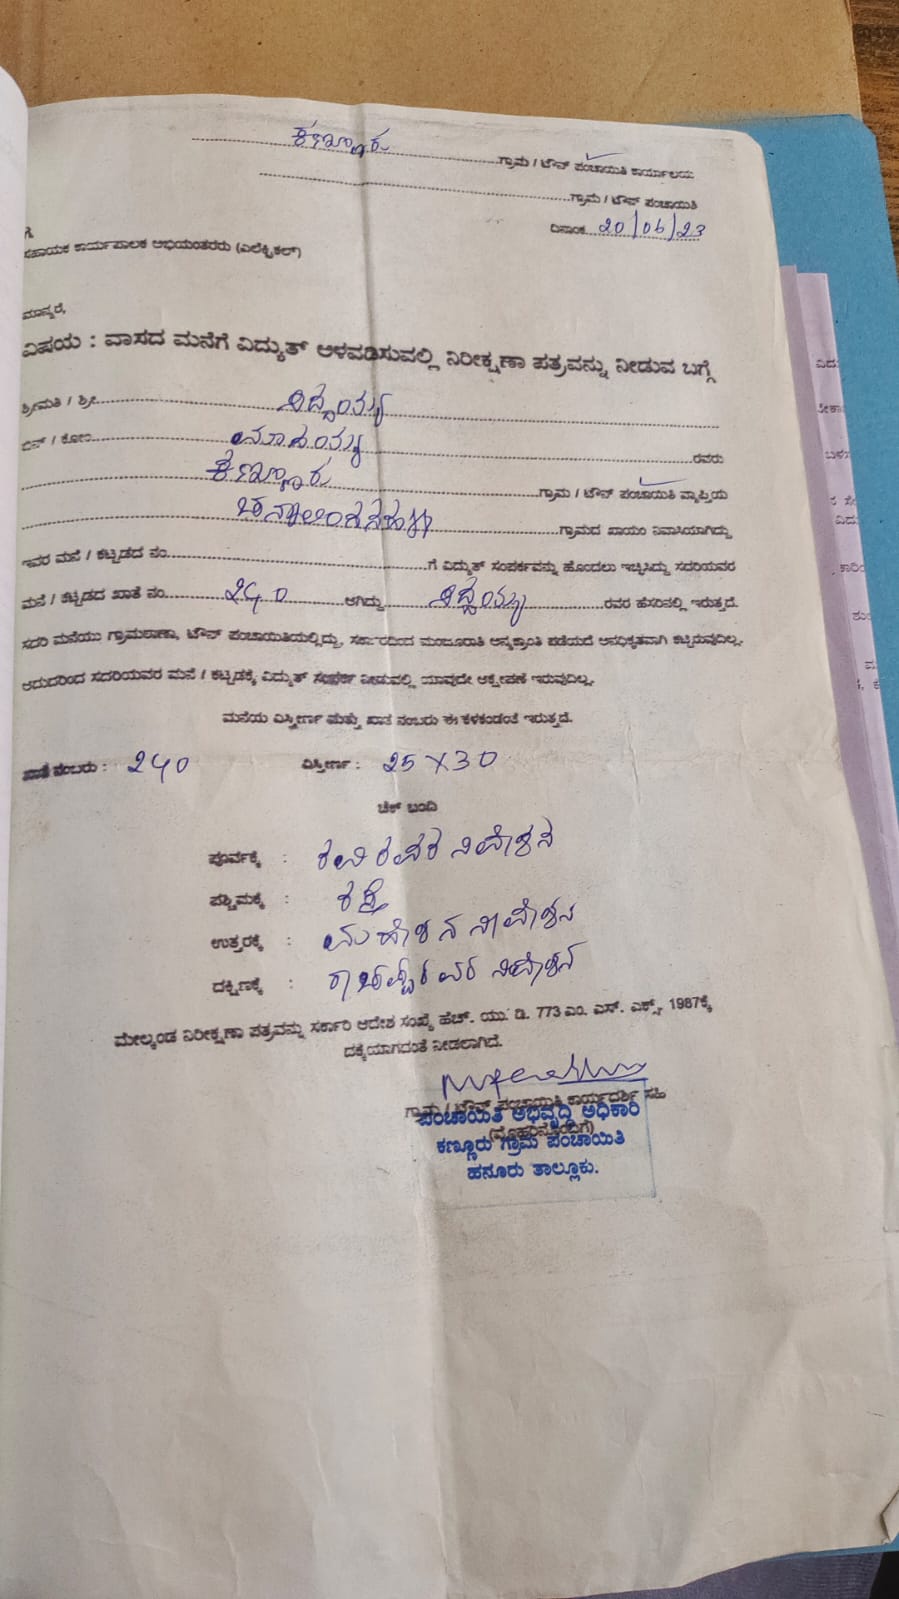 ಕಣ್ಣೂರು ಗ್ರಾಮ / ಟೌನ್ ಪಂಚಾಯಿತಿ ಕಾರ್ಯಾಲಯ
ಗ್ರಾಮ / ಟೌನ್ ಪಂಚಾಯಿತಿ
ದಿನಾಂಕ 20/06/23
ಗೆ,
ಸಹಾಯಕ ಕಾರ್ಯಪಾಲಕ ಅಭಿಯಂತರರು (ಎಲೆಕ್ಟ್ರಿಕಲ್)
ಮಾನ್ಯರೆ,
ವಿಷಯ : ವಾಸದ ಮನೆಗೆ ವಿದ್ಯುತ್ ಅಳವಡಿಸುವಲ್ಲಿ ನಿರೀಕ್ಷಣಾ ಪತ್ರವನ್ನು ನೀಡುವ ಬಗ್ಗೆ
ಶ್ರೀಮತಿ / ಶ್ರೀ ಸಿದ್ದಯ್ಯ
ಬಿನ್ / ಕೋಂ ರವರು
ಕಣ್ಣೂರು ಗ್ರಾಮ / ಟೌನ್ ಪಂಚಾಯಿತಿ ವ್ಯಾಪ್ತಿಯ
ಗ್ರಾಮದ ಖಾಯಂ ನಿವಾಸಿಯಾಗಿದ್ದು
ಇವರ ಮನೆ / ಕಟ್ಟಡದ ನಂ. ಗೆ ವಿದ್ಯುತ್ ಸಂಪರ್ಕವನ್ನು ಹೊಂದಲು ಇಚ್ಛಿಸಿದ್ದು ಸದರಿಯವರ
ಮನೆ / ಕಟ್ಟಡದ ಖಾತೆ ನಂ. 240 ಆಗಿದ್ದು ಸಿದ್ದಯ್ಯ ರವರ ಹೆಸರಿನಲ್ಲಿ ಇರುತ್ತದೆ.
ಸದರಿ ಮನೆಯು ಗ್ರಾಮಠಾಣಾ, ಟೌನ್ ಪಂಚಾಯಿತಿಯಲ್ಲಿದ್ದು, ಸರ್ಕಾರದಿಂದ ಮಂಜೂರಾತಿ ಅನ್ಯಕ್ರಾಂತಿ ಪಡೆಯದೆ ಅನಧಿಕೃತವಾಗಿ ಕಟ್ಟಿರುವುದಿಲ್ಲ.
ಆದುದರಿಂದ ಸದರಿಯವರ ಮನೆ / ಕಟ್ಟಡಕ್ಕೆ ವಿದ್ಯುತ್ ಸಂಪರ್ಕ ನೀಡುವಲ್ಲಿ ಯಾವುದೇ ಆಕ್ಷೇಪಣೆ ಇರುವುದಿಲ್ಲ.
ಮನೆಯ ವಿಸ್ತೀರ್ಣ ಮತ್ತು ಖಾತೆ ನಂಬರು ಈ ಕೆಳಕಂಡಂತೆ ಇರುತ್ತದೆ.
ಖಾತೆ ನಂಬರು : 240 ವಿಸ್ತೀರ್ಣ : 25 X 30
ಚೆಕ್ ಬಂದಿ
ಪೂರ್ವಕ್ಕೆ : ರವರ ನಿವೇಶನ
ಪಶ್ಚಿಮಕ್ಕೆ : ರಸ್ತೆ
ಉತ್ತರಕ್ಕೆ : ಮಹೇಶನ ನಿವೇಶನ
ದಕ್ಷಿಣಕ್ಕೆ : ನಿವೇಶನ
ಮೇಲ್ಕಂಡ ನಿರೀಕ್ಷಣಾ ಪತ್ರವನ್ನು ಸರ್ಕಾರಿ ಆದೇಶ ಸಂಖ್ಯೆ ಹೆಚ್. ಯು. ಡಿ. 773 ಎಂ. ಎಸ್. ಎಕ್ಸ್. 1987ಕ್ಕೆ
ದಕ್ಕೆಯಾಗದಂತೆ ನೀಡಲಾಗಿದೆ.
ಗ್ರಾಮ / ಟೌನ್ ಪಂಚಾಯಿತಿ ಕಾರ್ಯದರ್ಶಿ ಸಹಿ
ಪಂಚಾಯಿತಿ ಅಭಿವೃದ್ಧಿ ಅಧಿಕಾರಿ
(ಮೊಹರಿನೊಂದಿಗೆ)
ಕಣ್ಣೂರು ಗ್ರಾಮ ಪಂಚಾಯಿತಿ
ಹನೂರು ತಾಲ್ಲೂಕು.